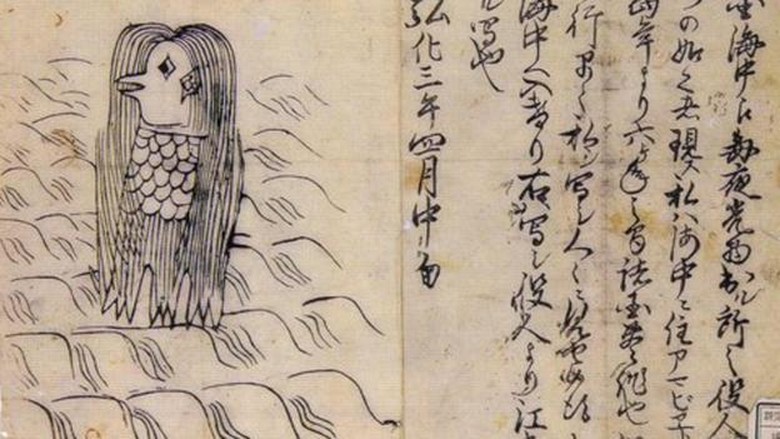 国海中江毎夜光物出ル所之役人
づの如く者現ス私ハ海中ニ住アマビヱ
当年より六ヶ年之間諸国豊作也
行早々私写シ人々ニ見セ候得
海中へ入けり右写シ役人より江
ル写也
弘化三年四月中旬